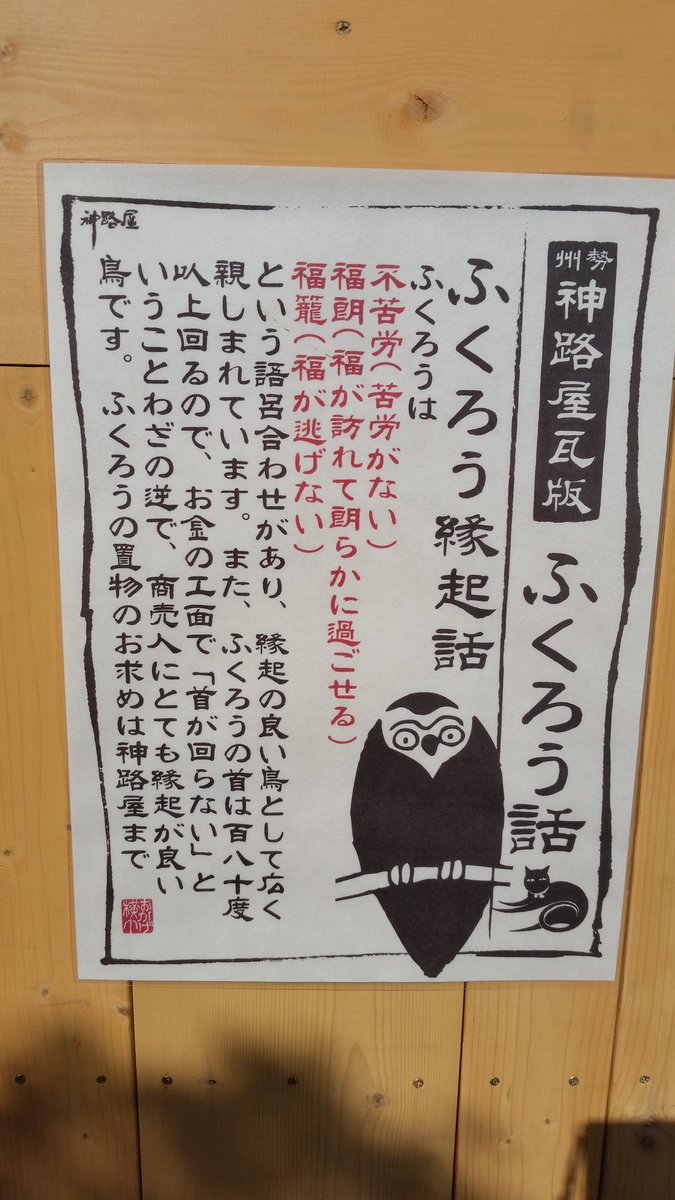 勢州
神路屋瓦版
ふくろう話
ふくろう縁起話
ふくろうは
不苦労(苦労がない)
福朗(福が訪れて朗らかに過ごせる)
福籠(福が逃げない)
という語呂合わせがあり、縁起の良い鳥として広く
親しまれています。また、ふくろうの首は百八十度
以上回るので、お金の工面で「首が回らない」と
いうことわざの逆で、商売人にとても縁起が良い
鳥です。 ふくろうの置物のお求めは神路屋まで
神路屋
おかげ横丁